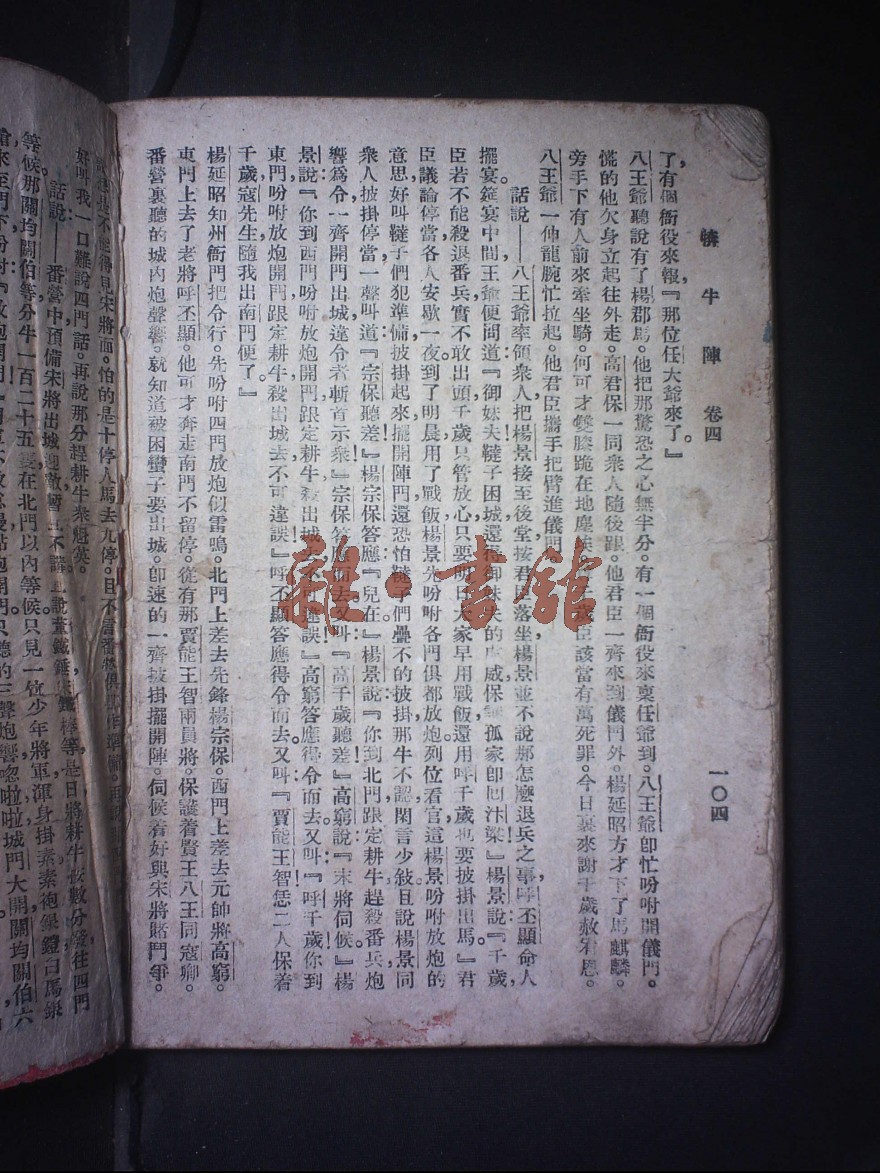 犇牛陣 卷四 一〇四
了，有個衙役來報『那位任大爺來了。』
八王爺聽說有了楊郡馬。他把那驚恐之心無半分。有一個衙役來稟任爺到。八王爺卽忙吩咐開儀門。
慌的他欠身立起往外走。高君保一同衆人隨後跟。他君臣一齊來到儀門外。楊延昭方才下了馬麒麟。
旁手下有人前來牽坐騎。何可才雙膝跪在地塵埃
歲臣該當有萬死罪。今日裏來謝千歲赦宥恩。
八王爺一伸龍腕忙拉起。他君臣攜手把臂進儀門
話說——八王爺率領衆人，把楊景接至後堂，按君臣落坐，楊景並不說那怎麼退兵之事，呼丕顯命人
擺宴。筵宴中間，王爺便問道：『御妹夫！韃子困城，還得御妹夫的
威保
孤家卽回汴梁。』楊景說：『千歲，
臣若不能殺退番兵，實不敢出頭，千歲只管放心，只要明日大家早用戰飯，還用呼千歲也要披掛出馬。』君
臣議論停當，各人安歇。一夜到了明晨，用了戰飯，楊景先吩咐各門俱都放炮。列位看官，這楊景吩咐放炮的
意思，好叫韃子們犯準備，披掛起來，擺開陣門，還恐怕韃子們疊不的披掛，那牛不認。閑言少敍，且說楊景同
衆人披掛停當，一聲叫道：『宗保聽差！』楊宗保答應『兒在。』楊景說：『你到北門，跟定耕牛，趕殺番兵，炮
響爲令，一齊開門出城，違令者斬首示衆。』宗保答應而去。又叫：『高千歲聽差！』高窮說：『末將伺候。』楊
景說：『你到西門，吩咐放炮開門，跟定耕牛，殺出城去，不可違誤。』高窮答應得令而去。又叫：『呼千歲！你到
東門，吩咐放炮開門，跟定耕牛，殺出城去，不可違誤。』呼丕顯答應得令而去。又叫：『賈能王智，恁二人保着
千歲寇先生，隨我出南門便了。』
楊延昭知州衙門把令行。先吩咐四門放炮似雷鳴。北門上差去先鋒楊宗保。西門上差去元帥將高窮。
東門上去了老將呼丕顯。他可才奔走南門不留停。從有那賈能王智兩員將。保護着賢王八王同寇卿。
番營裏聽的城內炮聲響。就知道被困蠻子要出城。卽速的一齊披掛擺開陣。伺候着好與宋將賭鬥爭。
不能得見宋將面。怕的是十停人馬去九停。且不言番
好叫我一口難說四門話。再說那分趕耕牛衆魁英。
話說——番營中預備宋將出城迎敵，暫且不講。且說董鐵錘
等，是日將耕牛
數分
往四門
等候。那關均關伯等分牛一百二十五隻，在北門以內等候。只見一位少年將軍，渾身掛素，素袍
白馬銀